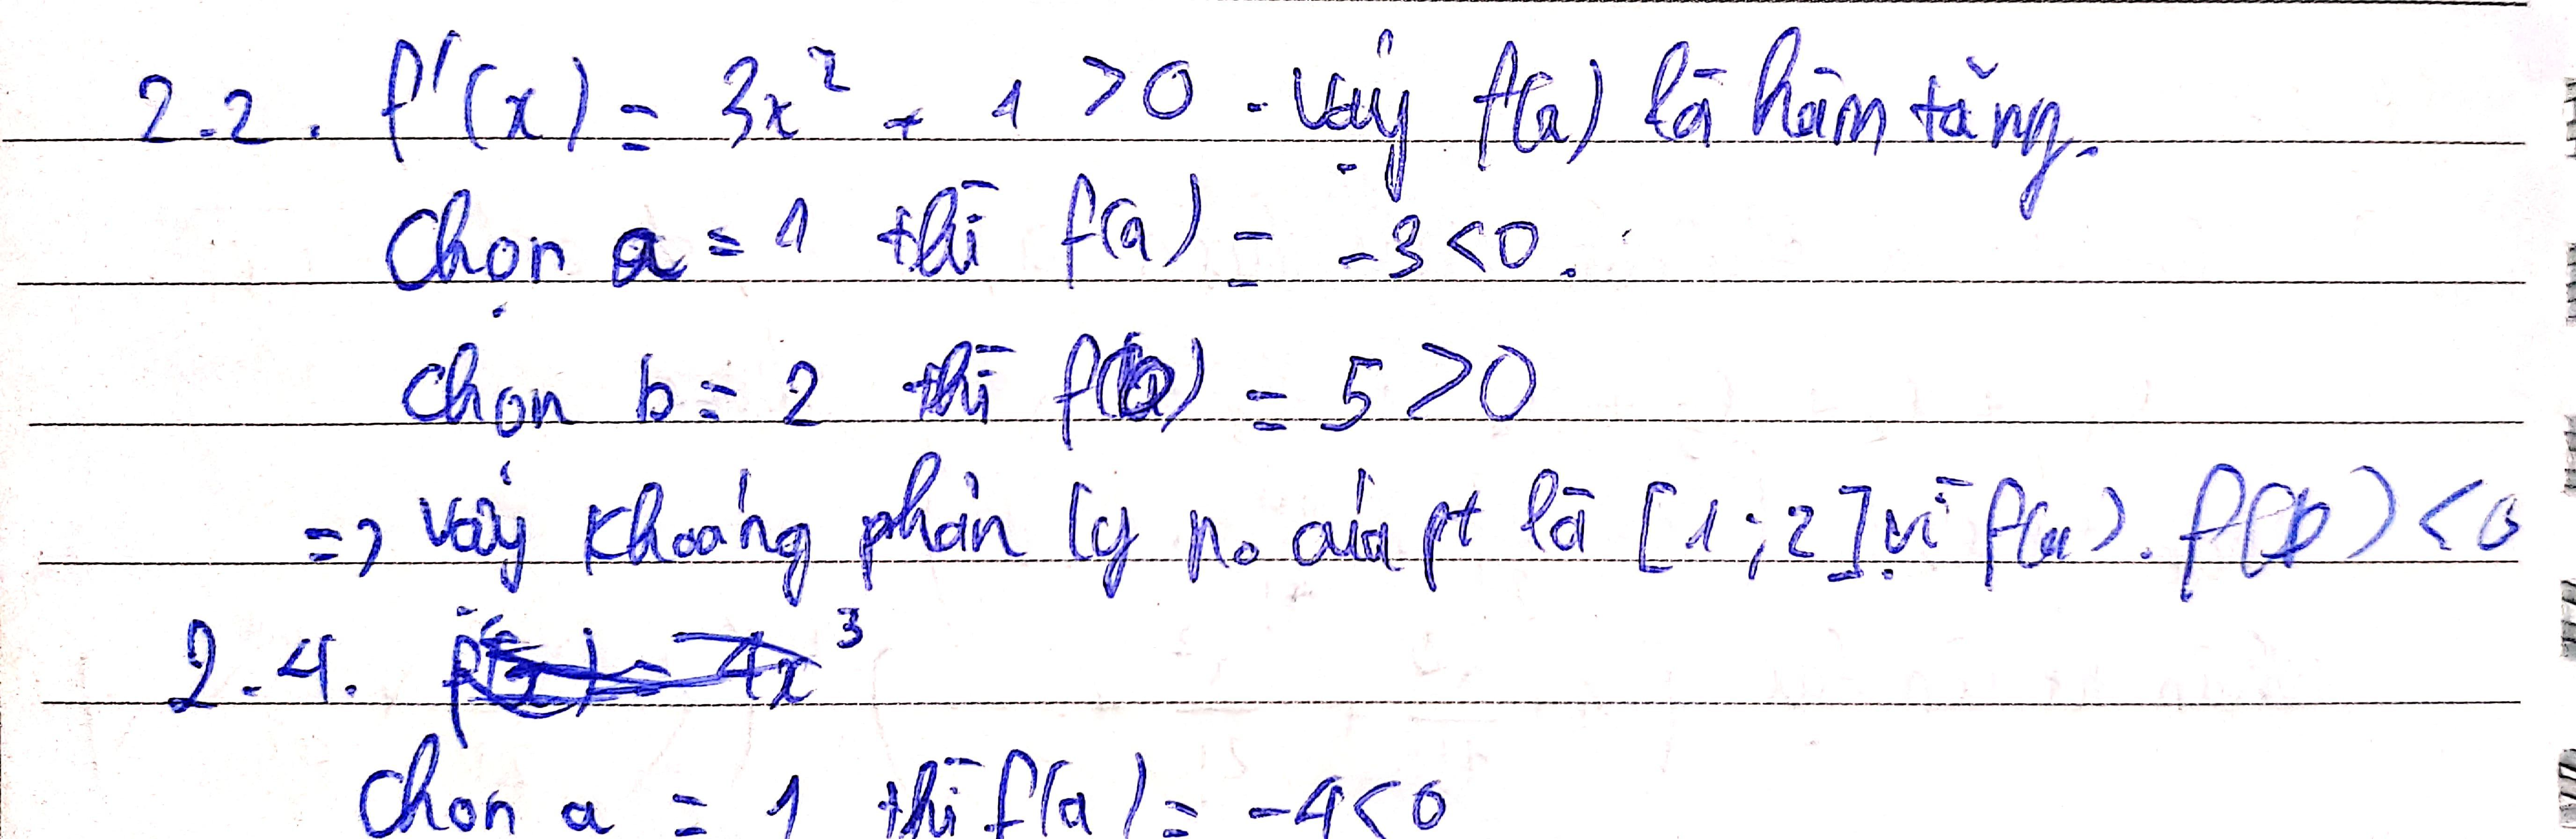 2.2. f'(x) = 3x² + 1 > 0. Vậy f(x) là hàm tăng.
Chọn a = 1 thì f(a) = -3 < 0.
chọn b = 2 thì f(b) = 5 > 0
=> Vậy khoảng phân ly no của pt là [1; 2] vì f(a). f(b) < 0
2.4.
Chọn a = 1 thì f(a) = -4 < 0